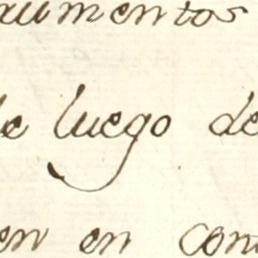 umentos
de luego de
en en con